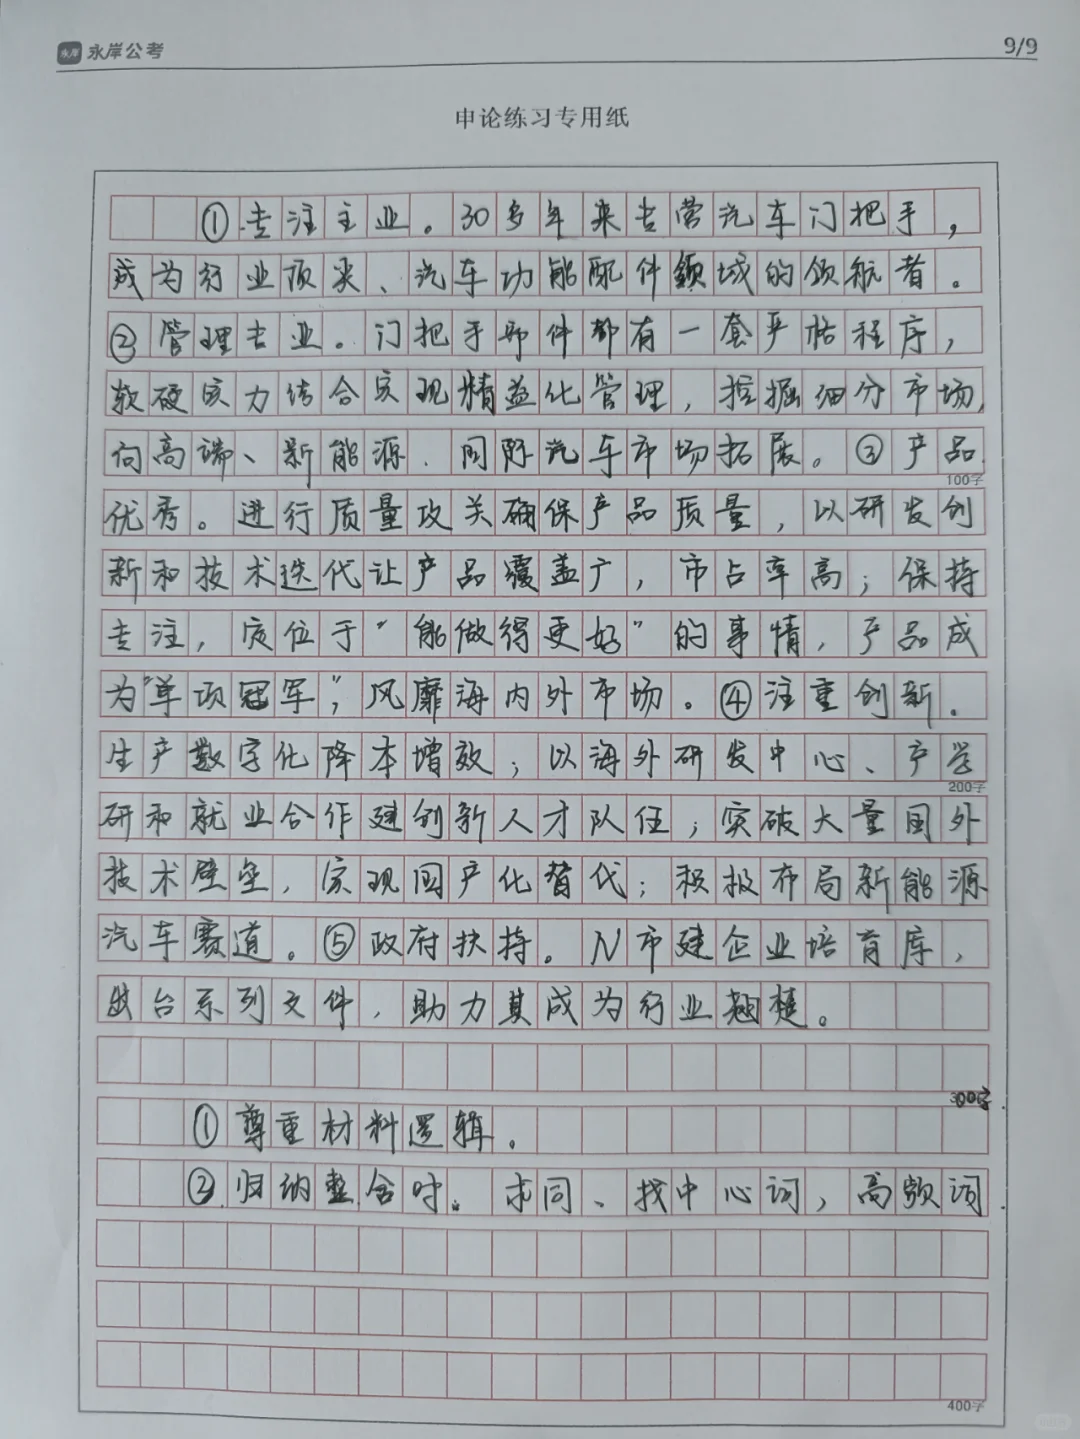 永岸 永岸公考
9/9
申论练习专用纸
①专注主业。30多年来专营汽车门把手，
成为行业顶尖、汽车功能配件领域的领航者。
②管理专业。门把手部件都有一套严格程序，
软硬实力结合实现精益化管理，挖掘细分市场，
向高端、新能源、国际汽车市场拓展。③产品
100字
优秀。进行质量攻关确保产品质量，以研发创
新和技术迭代让产品覆盖广，市占率高；保持
专注，定位于“能做得更好”的事情，产品成
为“单项冠军”，风靡海内外市场。④注重创新。
生产数字化降本增效；以海外研发中心、产学
200字
研和就业合作建创新人才队伍；突破大量国外
技术壁垒，实现国产化替代；积极布局新能源
汽车赛道。⑤政府扶持。N市建企业培育库，
出台系列文件，助力其成为行业翘楚。
300字
①尊重材料逻辑。
②归纳整合时。求同、找中心词，高频词.
400字